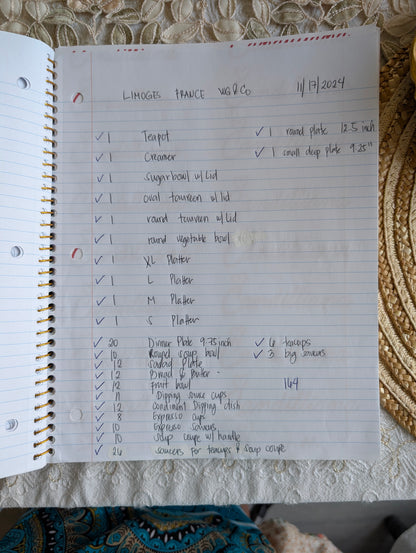 LIMOGES FRANCE WG&CO 11/17/2024
✓ 1 Teapot ✓ 1 round plate 12.5 inch
✓ 1 Creamer ✓ 1 small deep plate 9.25"
✓ 1 sugarbowl w/Lid
✓ 1 oval toureen w/lid
✓ 1 round toureen w/Lid
✓ 1 round vegetable bowl
✓ 1 XL Platter
✓ 1 L Platter
✓ 1 M Platter
✓ 1 S Platter
✓ 20 Dinner Plate 9.75 inch ✓ 6 teacups
✓ 10 Round soup bowl ✓ 3 big saucers
✓ 12 Salad Plate
✓ 12 Bread & Butter - 164
✓ 12 fruit bowl
✓ 11 Dipping sauce cups
✓ 12 condiment Dipping dish
✓ 8 Espresso cups
✓ 10 Espresso saucers
✓ 10 Soup coupe w/ handle
✓ 26 saucers for teacups & soup coupe